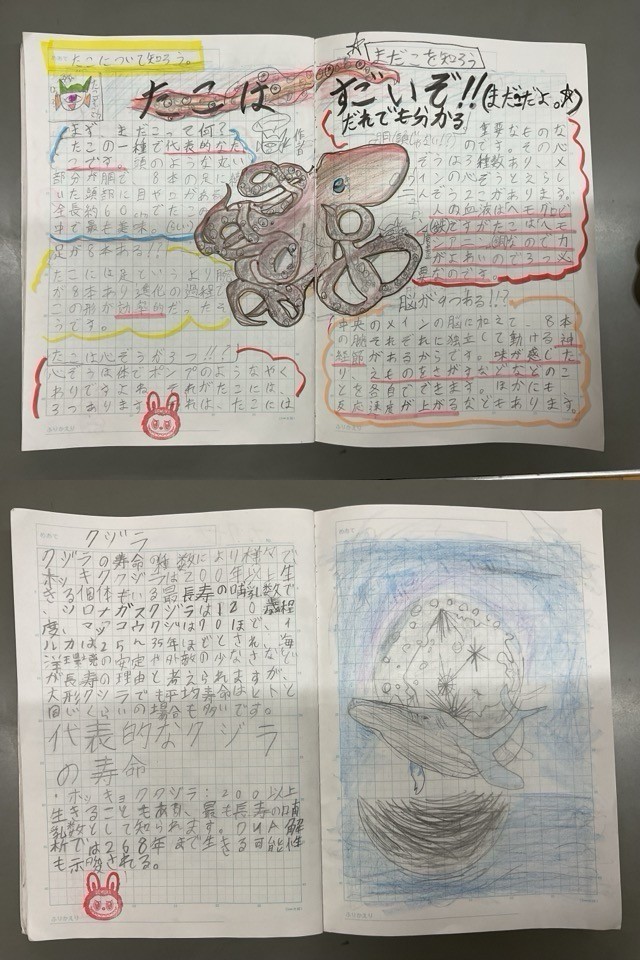 たこについて知ろう。
たこは
まず、まだこって何？
たこの一種で代表的なた
つです。頭のような丸い
部分が胴で、8本の足に
いた頭部に目や口がある
全長約60cmでたこ
中で最も美味
足が8本ある!!?
たこには足というより腕
が8本あり進化の過程で
この形が効率的だったよ
うです。
たこは心ぞうが3つ!!?
心ぞうは体でポンプのようなやく
わりですよね。それがたこには、
3つあります。それは、たこには
まだこを知ろう
すごいぞ!!(まだこだよ。)
だれでも分かる
重要なものな
のです。その心
ぞうは3種数あり、メ
インの心ぞうとえらし
んぞう2つがあります。
人の血液はヘモグロビ
(鉄)ですがたこはヘモ
シアニン(銅)なので力
がよわいので3つ必
要なのです。
脳が9つある!!?
中央のメインの脳に加えて、8本
の腕それぞれに独立して動ける神
経節があるからです。味が感じた
り、えものをさがすなどなどのこ
とを各自でできます。ほかにも
反応速度が上がるなどもあります。
クジラ
クジラの寿命の種数により様々で
ホッキクククジラは200年以上生
きる個体もいる最長寿の哺乳数で
、シロナガスクジラは120歳程
度、マッコウクジは70ほど、イ
ルカは25~35年ほどとされ、海
洋環境の安定や外敵の少なさなど
が長寿の理由と考えられますが、
大形クジラでも平均寿命はヒトと
同じくらいの場合も多いです。
代表的なクジラ
の寿命
・ホッキョククジラ:200以上
生きることもあり、最も長寿の哺
乳数として知られます。DNA解
析では268年まで生きる可能性
も示唆される。